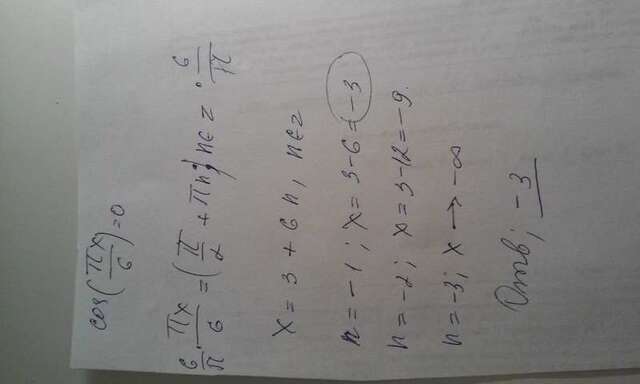 cos(πx/6)=0
6/π · πx/6 = (π/2 + πn), n∈z · 6/π
x = 3 + 6n, n∈z
n = -1; x = 3-6 = -3
n = -2; x = 3-12 = -9.
n = -3; x → -∞
Отв; -3